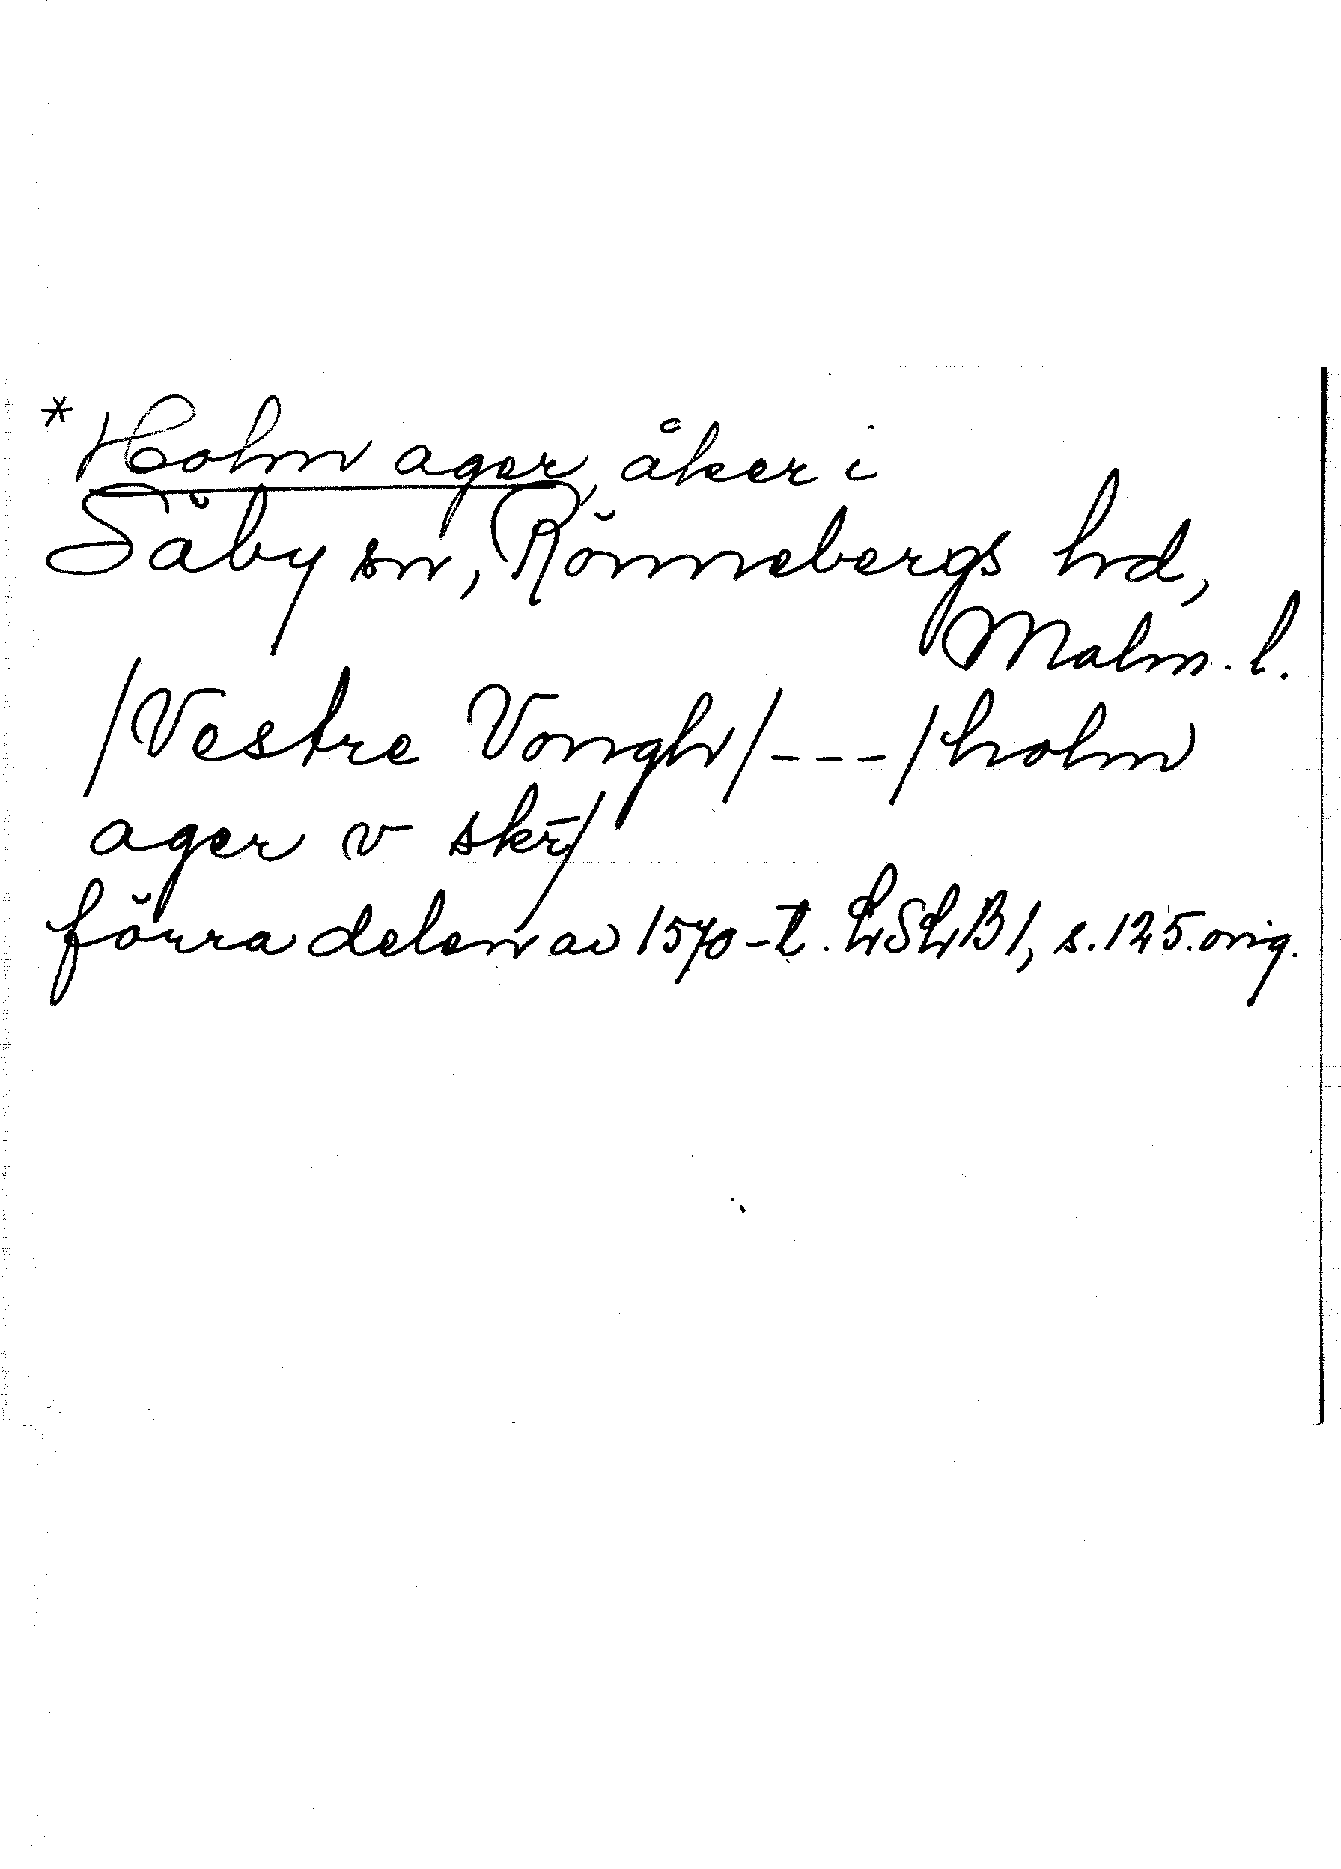 *Holm ager, åker i
Säby sn, Rönnebergs hd,
Malm. l.
/Vestre Vongh/---/holm
ager v skr̄/
förra delen av 1570-t. LSLB 1, s. 125. orig.